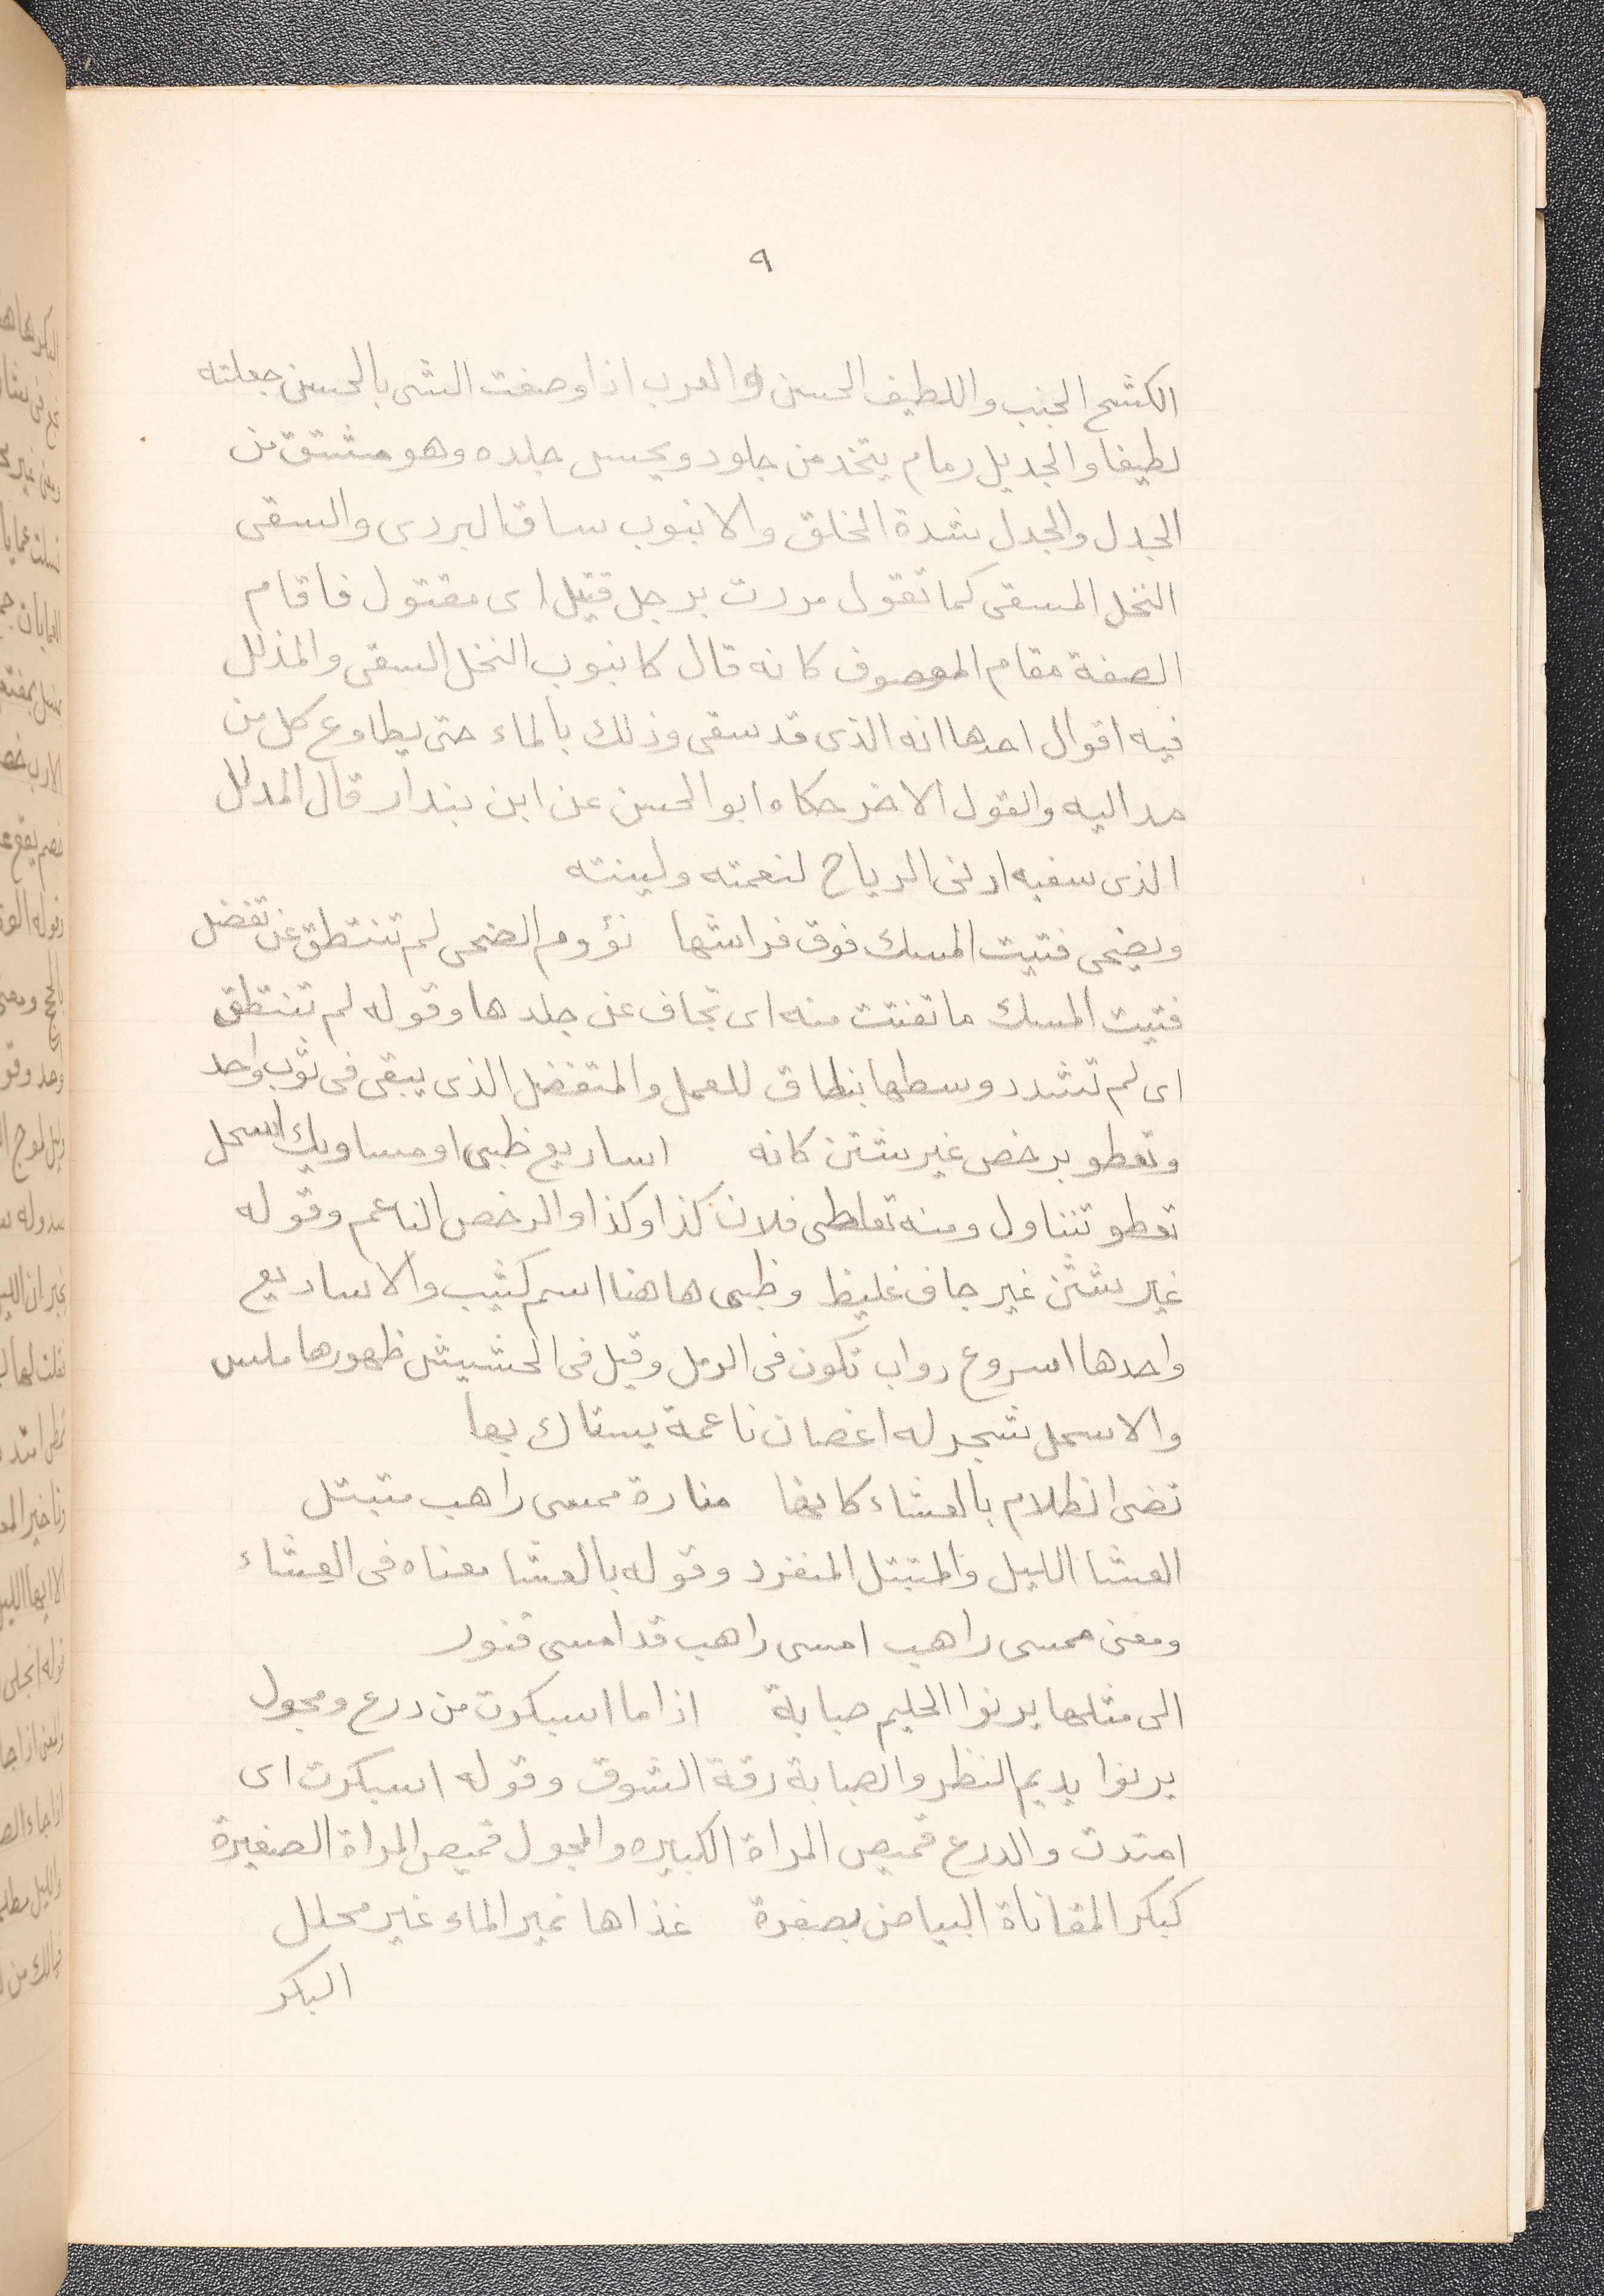 ٩
الكشح الجنب واللطيف الحسن والعرب اذا وصفت الشى بالحسن جعلته
لطيفا والجديل رمام يتخذ من جلود ويحسن جلده وهو مشتق من
الجدل والجدل شدة الخلق والانبوب ساق البردى والسقى
النخل المسقى كما تقول مررت برجل قتيل اى مقتول فاقام
الصفة مقام الموصوف كانه قال كانبوب النخل السقى والمذلل
فيه اقوال احدها انه الذى قد سقى وذلك بالماء حتى يطاوع كل من
مد اليه والقول الاخر حكاه ابو الحسن عن ابن بندار قال المدلل
الذى سفيه ادنى الرياح لنعمته ولينته
ويضحى فتيت المسك فوق فراشها نؤوم الضحى لم تنتطق عن تفضل
فتيت المسك ما تفتت منه اى تجاف عن جلدها وقوله لم تنتطق
اى لم تشدد وسطها بنطاق للعمل والمتفضل الذى يبقى فى ثوب واحد
وتعطو برخص غير شثن كانه اساريع ظبى او مساويك اسحل
تعطو تتناول ومنه تعاطى فلان كذا وكذا والرخص الناعم وقوله
غير شثن غير جاف غليظ وظبى هاهنا اسم كثيب والاساريع
واحدها اسروع دواب تكون فى الرمل وقيل فى الحشيش ظهورها ملس
والاسحل شجر له اغصان ناعمة يستاك بها
تضى الظلام بالعشاء كانها منارة ممسى راهب متبتل
العشا الليل والمتبتل المنفرد وقوله بالعشا معناه فى العشاء
ومعنى ممسى راهب امسى راهب قد امسى فنور
الى مثلها يرنوا الحليم صبابة اذا ما اسبكرت من درع ومجول
يرنوا يديم النظر والصبابة رقة الشوق وقوله اسبكرت اى
امتدت والدرع قميص المراة الكبيره والمجول قميص المراة الصغيرة
كبكر المقاناة البياض بصفرة غذاها نمير الماء غير محلل
البكر